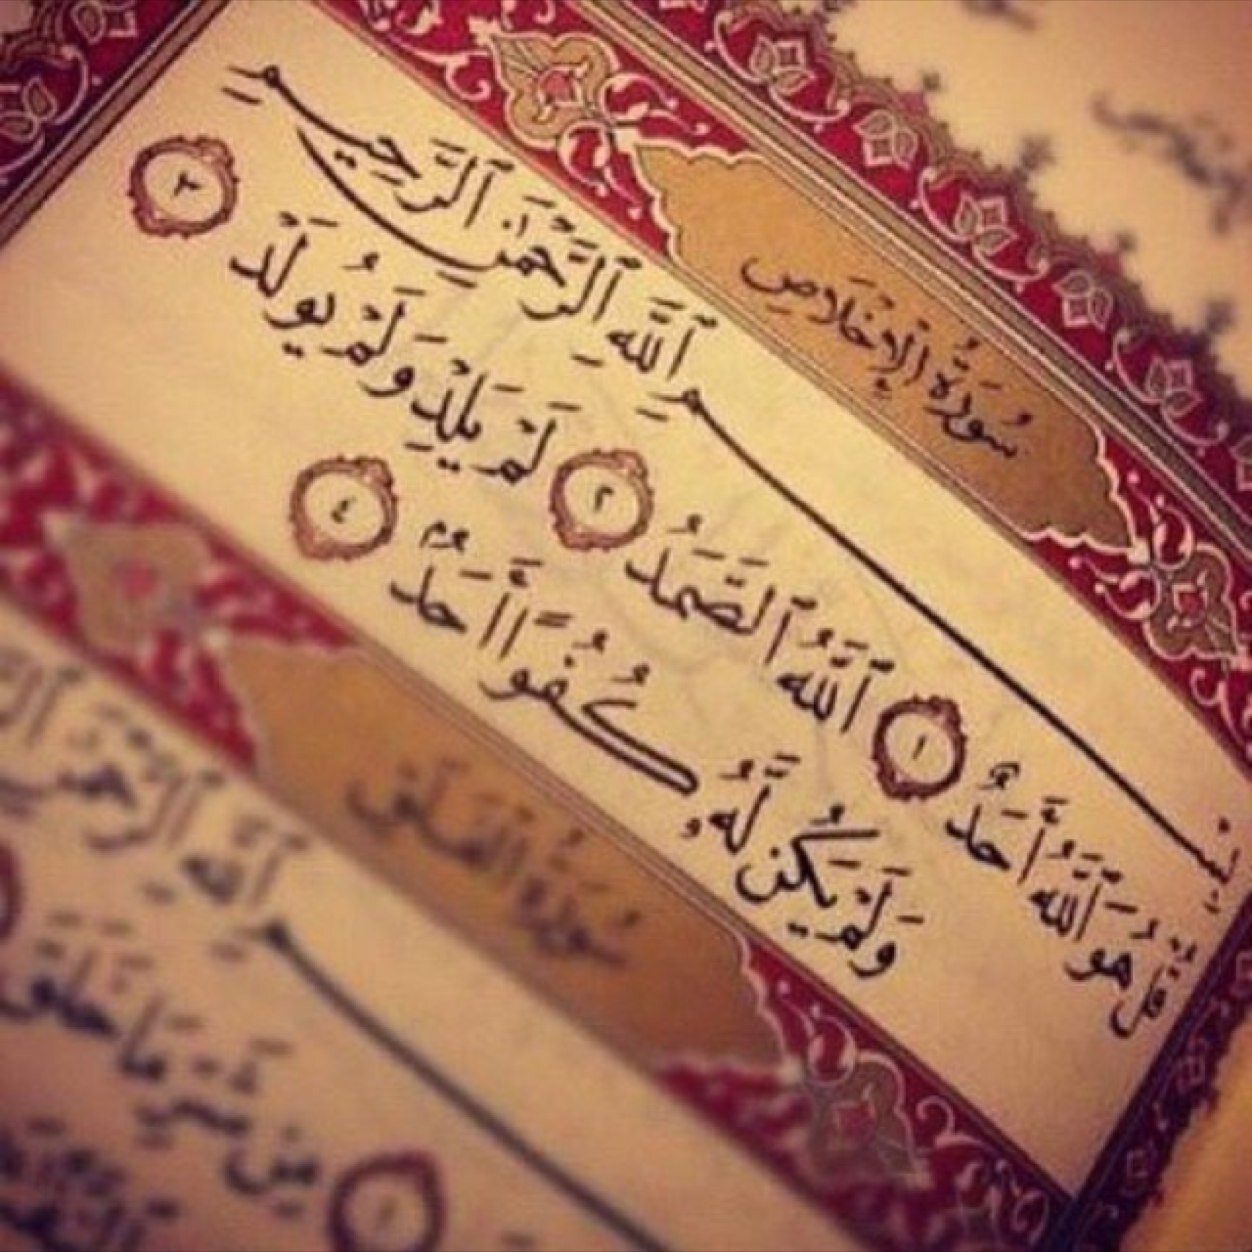 سُورَةُ الْإِخْلَاصِ
بِسْمِ ٱللَّهِ ٱلرَّحْمَٰنِ ٱلرَّحِيمِ
قُلْ هُوَ ٱللَّهُ أَحَدٌ ١ ٱللَّهُ ٱلصَّمَدُ ٢ لَمْ يَلِدْ وَلَمْ يُولَدْ ٣
وَلَمْ يَكُن لَّهُۥ كُفُوًا أَحَدٌۢ ٤
سُورَةُ الْفَلَقِ
ٱللَّهِ ٱلرَّحْمَٰنِ
١ مِن شَرِّ مَا خَلَقَ